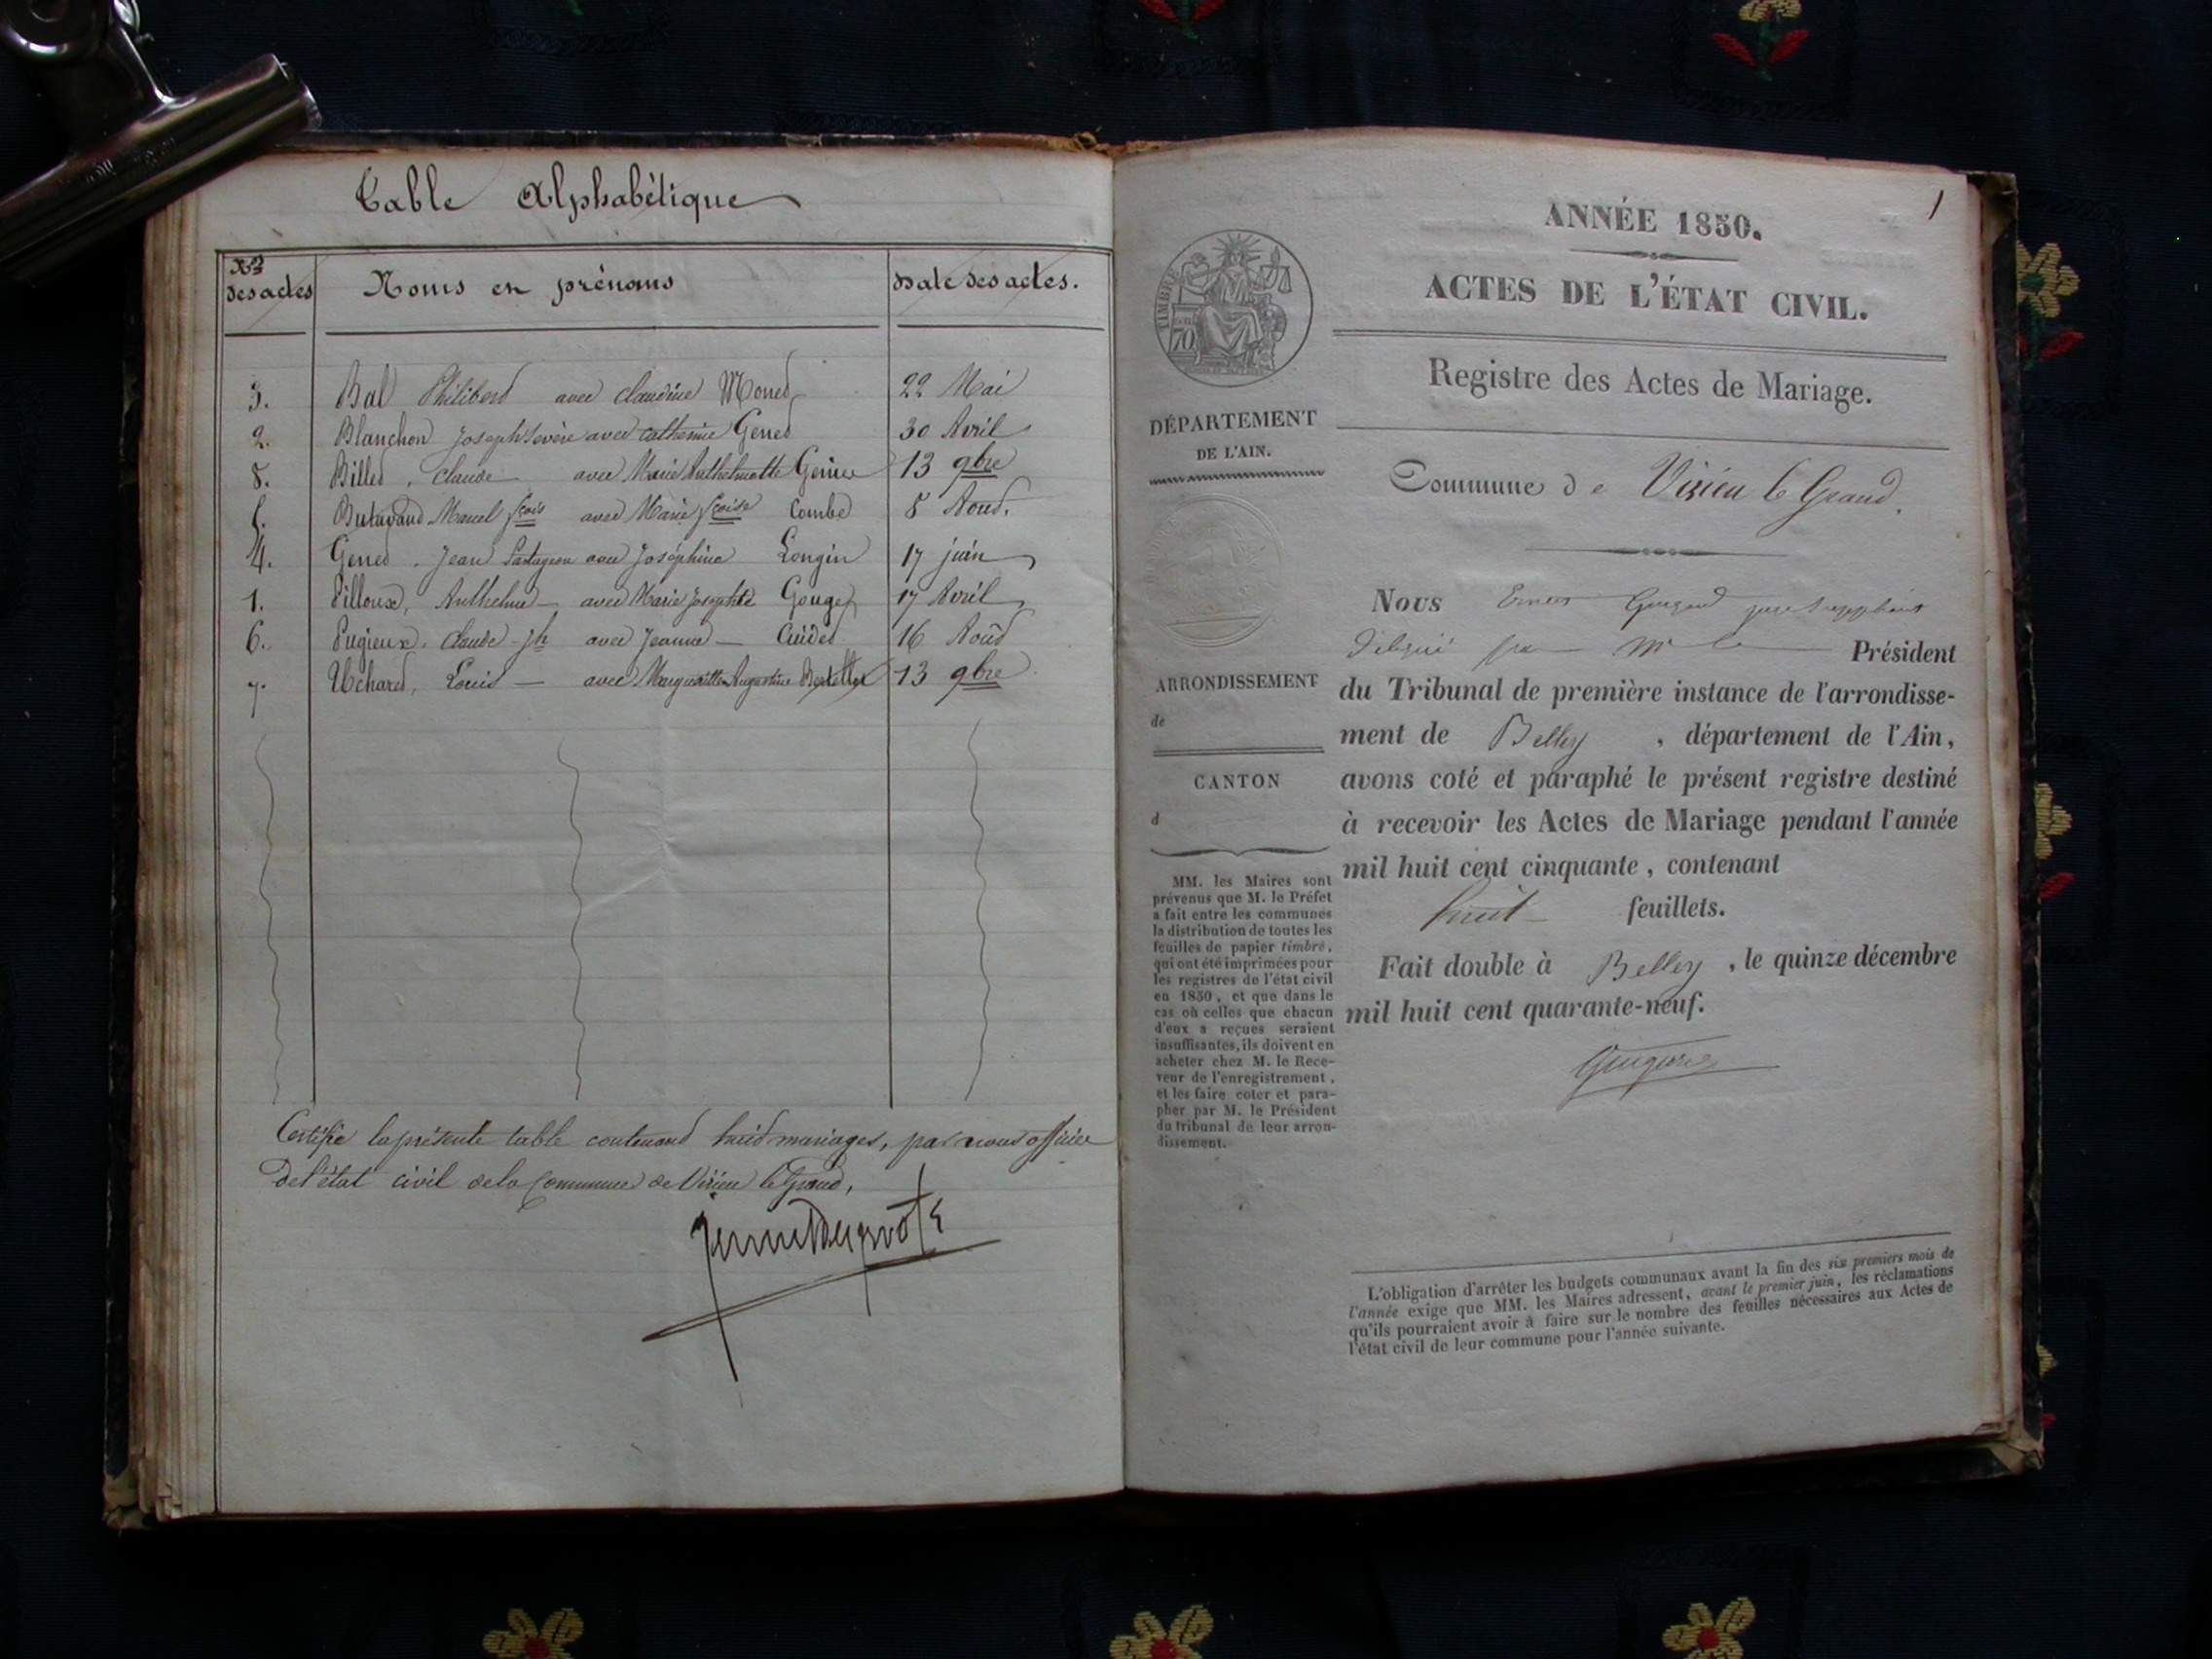 Table Alphabétique
Nos des actes
Noms et prénoms
Date des actes.
3. Bal Philibert avec Claudine Monet 22 Mai
2. Blanchon Joseph Sevère avec Catherine Genet 30 Avril
8. Billet, Claude avec Marie Anthelmette 13 9bre
5. Butavand Marcel fçois avec Marie fçoise Combe 8 Aout.
4. Genet, Jean avec Joséphine Longin 17 juin
1. Pilloux, Anthelme avec Marie Josephte Gouget 17 Avril
6. Pugieux, Claude - jh avec Jeanne - Cuidet 16 Aout
7. Uchard, Louis - avec Marguerite Augustine 13 9bre
Certifié la présente table contenant huit mariages, par nous officier
de l'état civil de la Commune de Virieu le Grand,
1
ANNÉE 1850.
ACTES DE L'ÉTAT CIVIL.
Registre des Actes de Mariage.
TIMBRE
70
DÉPARTEMENT
DE L'AIN.
Commune de Virieu le Grand.
Nous juge suppléant
délégué par Mr le Président
du Tribunal de première instance de l'arrondisse-
ment de Belley, département de l'Ain,
avons coté et paraphé le présent registre destiné
à recevoir les Actes de Mariage pendant l'année
mil huit cent cinquante, contenant
huit feuillets.
Fait double à Belley, le quinze décembre
mil huit cent quarante-neuf.
ARRONDISSEMENT
de
CANTON
d
MM. les Maires sont
prévenus que M. le Préfet
a fait entre les communes
la distribution de toutes les
feuilles de papier timbré,
qui ont été imprimées pour
les registres de l'état civil
en 1850, et que dans le
cas où celles que chacun
d'eux a reçues seraient
insuffisantes, ils doivent en
acheter chez M. le Rece-
veur de l'enregistrement,
et les faire coter et para-
pher par M. le Président
du tribunal de leur arron-
dissement.
L'obligation d'arrêter les budgets communaux avant la fin des six premiers mois de
l'année exige que MM. les Maires adressent, avant le premier juin, les réclamations
qu'ils pourraient avoir à faire sur le nombre des feuilles nécessaires aux Actes de
l'état civil de leur commune pour l'année suivante.